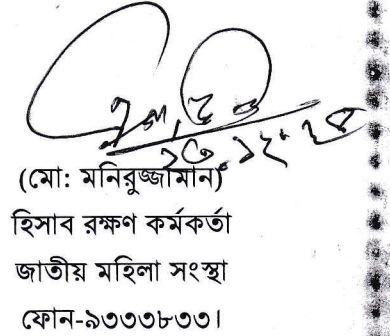 (মো: মনিরুজ্জামান)
হিসাব রক্ষণ কর্মকর্তা
জাতীয় মহিলা সংস্থা
ফোন-৯৩৩৩৮৩৩।